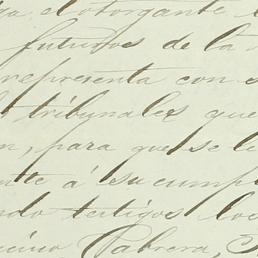 a el otorgante
futuros de la
representa con
tribunales que
n, para que se le
nte á su cumpl
ndo testigos los
cino Cabrera,